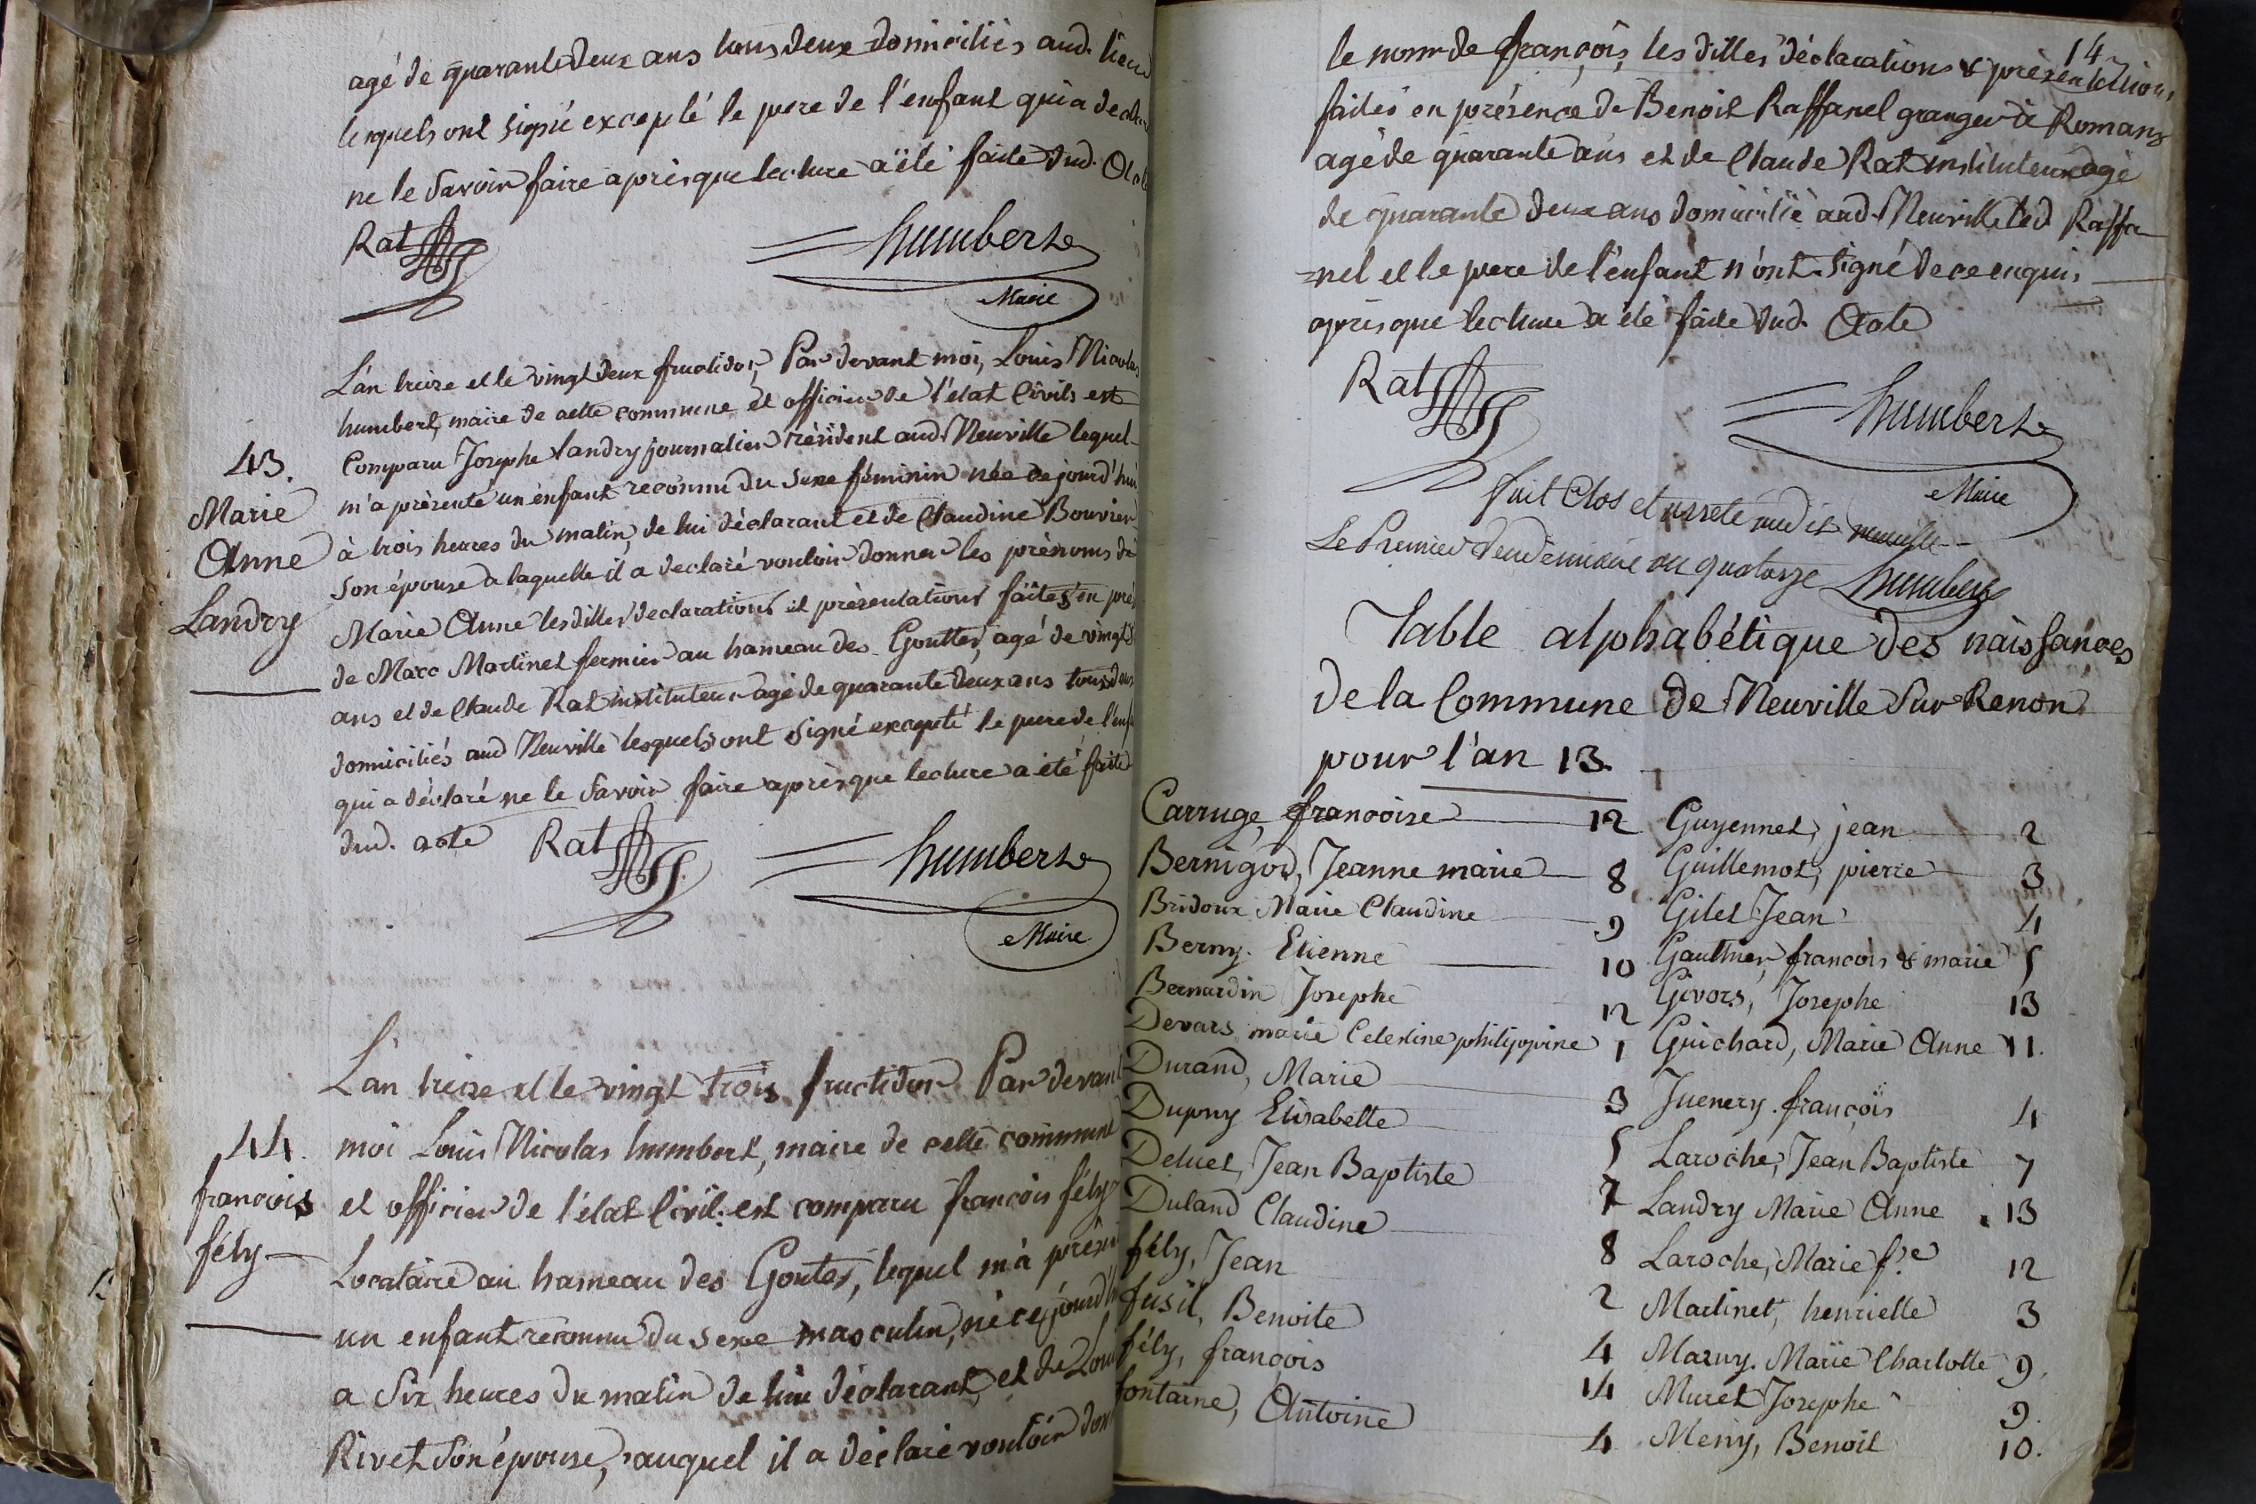 agé de quarante deux ans tous deux domiciliés aud. lieu
lesquels ont signé excepté le pere de l'enfant qui a declaré
ne le savoir faire après que lecture a été faite dud. Acte
Rat
humbert
Maire
L'an treize et le vingt deux fructidor, Par devant moi, Louis Nicolas
humbert, maire de cette commune et officier de l'état Civil, est
43.
Comparu Josephe Landry journalier résident aud. Neuville lequel
Marie
m'a présenté un enfant reconnu du sexe féminin née ce jourd'hui
Anne
à trois heures du matin, de lui déclarant et de Claudine Bouvier
Landry
son épouse à laquelle il a declaré vouloir donner les prénoms de
Marie Anne lesdittes declarations et présentations faites en pré
de Marc Martinet fermier au hameau des Gouttes, agé de vingt
ans et de Claude Rat instituteur agé de quarante deux ans tous deux
domiciliés aud Neuville lesquels ont signé excepté le pere de l'enf
qui a déclaré ne le savoir faire après que lecture a été faite
dud. acte
Rat
humbert
Maire
L'an treize et le vingt trois fructidor Par devant
44.
moi Louis Nicolas humbert, maire de cette commune
francois
et officier de l'état Civil, est comparu francois fély
fély
Locataire au hameau des Goutes, lequel m'a présen
un enfant reconnu du sexe masculin, né ce jourd'h
a six heures du matin de lui déclarant, et de Loui
Rivet son épouse, auquel il a déclaré vouloir don
14
le nom de françois, les dittes déclarations & présentations
faites en présence de Benoit Raffanel granger à Romans
agé de quarante ans et de Claude Rat instituteur agé
de quarante deux ans domicilié aud. Neuville led Raffa
=nel et le pere de l'enfant n'ont signé de ce enquis
après que lecture a été faite dud. Acte
Rat
humbert
Maire
fait Clos et arreté audit neuville
Le Premier Vendemiaire an quatorze humbert
Table alphabétique des naissances
de la Commune de Neuville sur Renon
pour l'an 13.
Carruge, francoise 12
Bernigod, Jeanne marie 8
Bridoux Marie Claudine 9
Berny. Etienne 10
Bernardin Josephe 12
Devars marie Celestine philippine 1
Durand, Marie 3
Dupuy Elisabette 5
Deluet, Jean Baptiste 7
Duland Claudine 8
fély, Jean 2
fusil, Benoite 4
fély, françois 14
fontaine, Antoine 4
Guyennet, jean 2
Guillemot, pierre 3
Gilet Jean 4
Gauthier, francois & marie 5
Givors, Josephe 13
Guichard, Marie Anne 11.
Juenery. françois 4
Laroche, Jean Baptiste 7
Landry Marie Anne 13
Laroche, Marie f.se 12
Martinet, henriette 3
Mazuy. Marie Charlotte 9.
Muret Josephe 9.
Meny, Benoit 10.